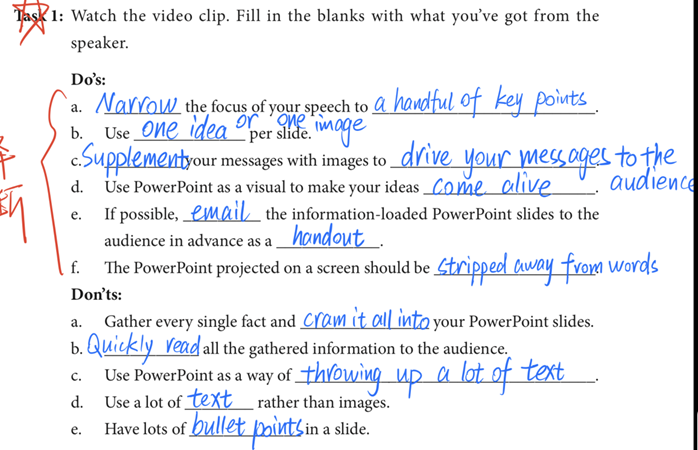 Task 1: Watch the video clip. Fill in the blanks with what you've got from the
speaker.
Do's:
a. Narrow the focus of your speech to a handful of key points.
b. Use one idea or one image per slide.
c. Supplement your messages with images to drive your messages to the audience
d. Use PowerPoint as a visual to make your ideas come alive.
e. If possible, email the information-loaded PowerPoint slides to the
audience in advance as a handout.
f. The PowerPoint projected on a screen should be stripped away from words
Don'ts:
a. Gather every single fact and cram it all into your PowerPoint slides.
b. Quickly read all the gathered information to the audience.
c. Use PowerPoint as a way of throwing up a lot of text.
d. Use a lot of text rather than images.
e. Have lots of bullet points in a slide.